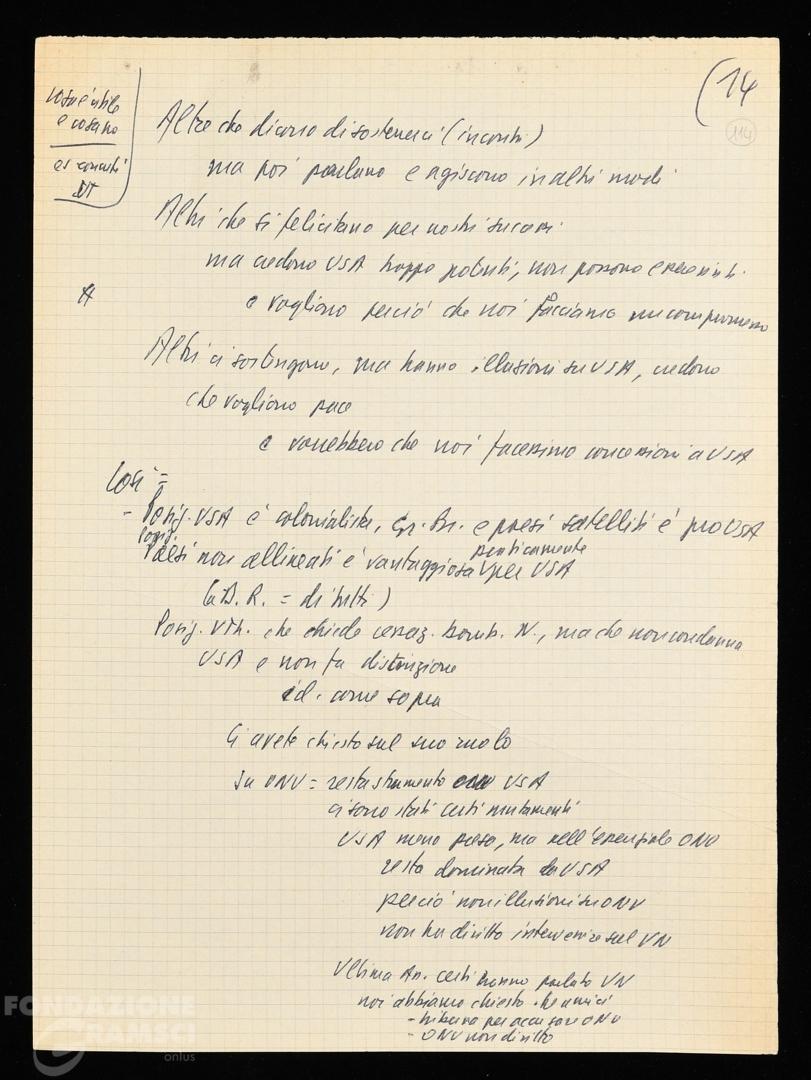 (14
114
cosa è utile
e cosa no
es comitati
Altre che dicono di sostenerci (incontri)
ma poi parlano e agiscono in altri modi
Altri che si felicitano per nostri successi
ma credono USA troppo potenti, non possono essere vinti
e vogliono perciò che noi facciamo un compromesso
Altri ci sostengono, ma hanno illusioni su USA, credono
che vogliono pace
e vorrebbero che noi facessimo concessioni a USA
Così =
- Posiz. USA è colonialista, Gr. Br. e paesi satelliti è pro USA
posiz.
Paesi non allineati è vantaggiosa praticamente per USA
= di tutti)
Posiz. che chiede cessaz. bomb. N., ma che non condanna
USA e non fa distinzione
id. come sopra
Ci avete chiesto sul suo ruolo
Su ONU = resta strumento USA
ci sono stati certi mutamenti
USA meno presa, ma nell'essenziale ONU
resta dominata da USA
perciò non illusioni su ONU
non ha diritto intervenire sul VN
Ultima An. certi hanno parlato VN
noi abbiamo chiesto che amici
- tribuna per accusare ONU
- ONU non diritto
FONDAZIONE
GRAMSCI
onlus